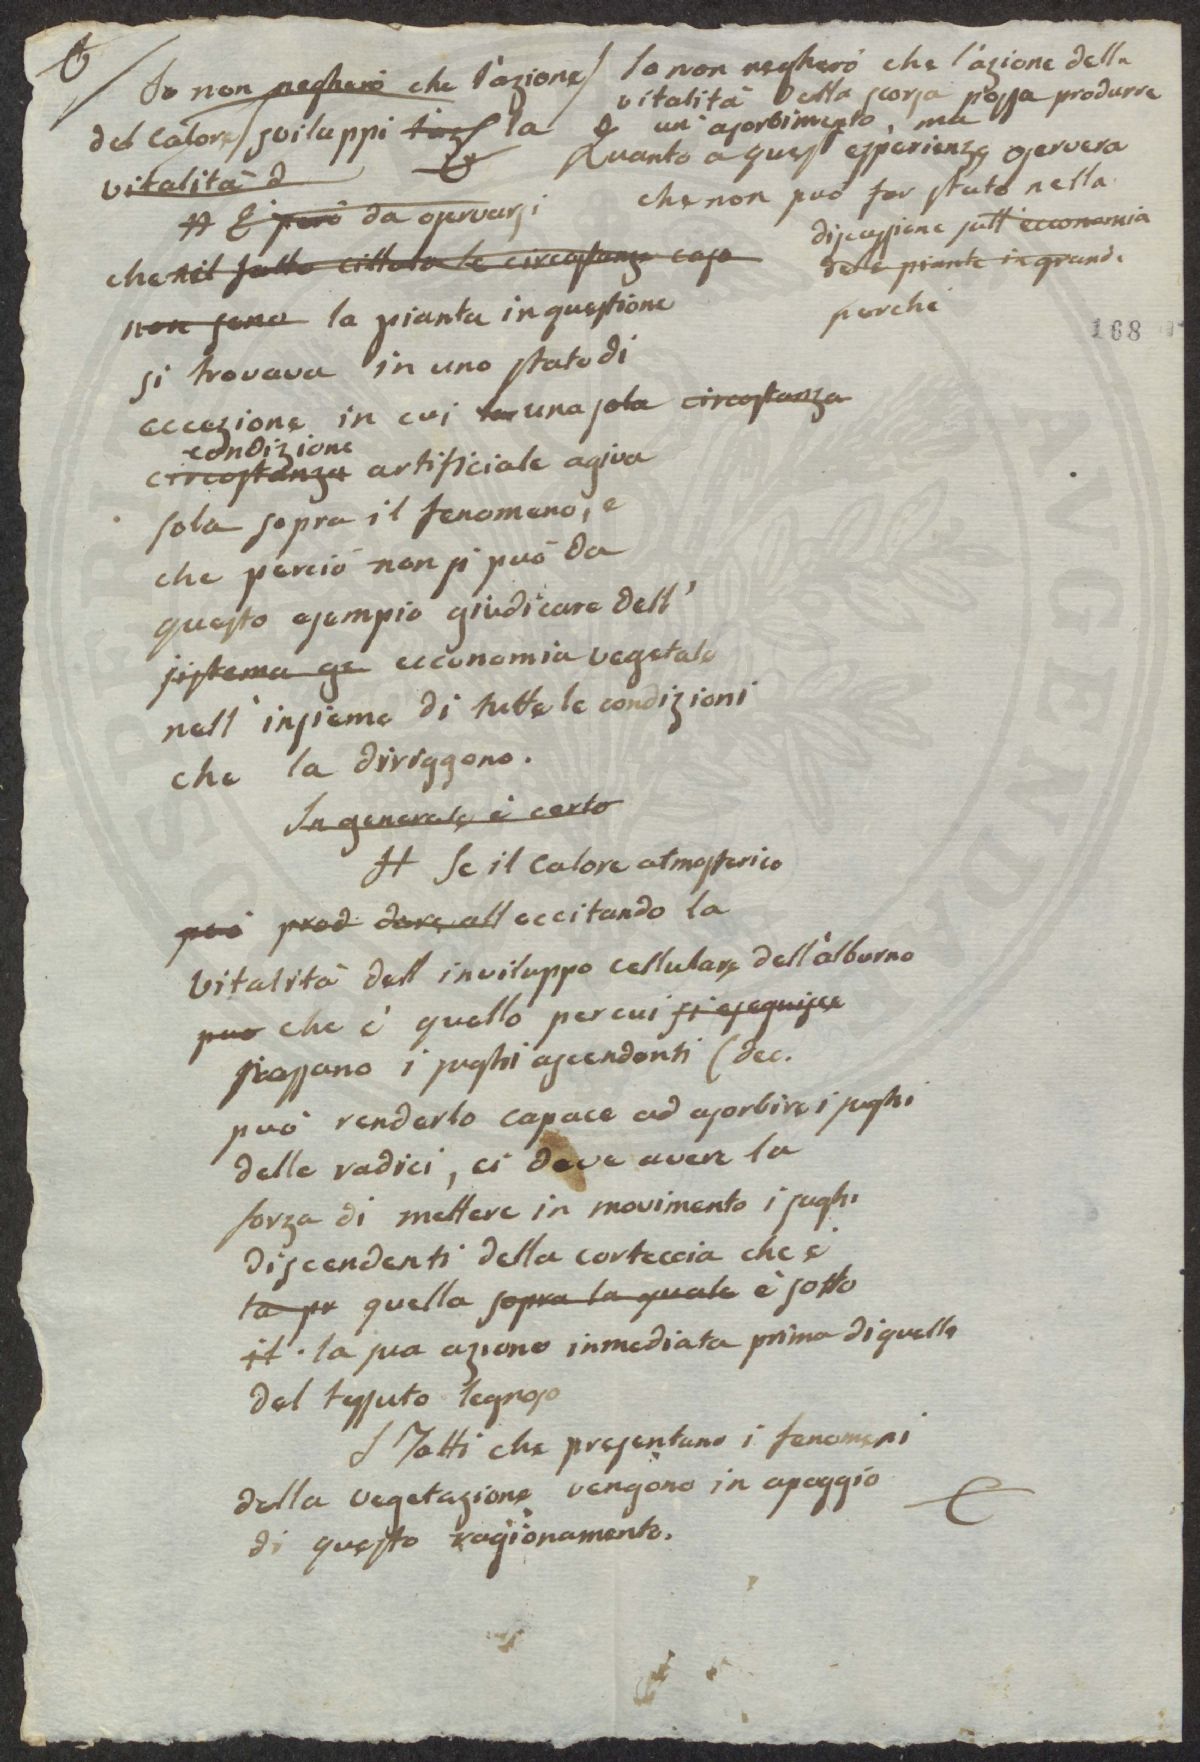 Io non negherò che l'azione
del Calore sviluppi la
vitalità d
# E però da osservarsi
che nel fatto cittato le circostanze cose
non sono la pianta in questione
si trovava in uno stato di
eccezione in cui una sola circostanza
condizione
circostanza artificiale agiva
sola sopra il fenomeno, e
che perciò non si può da
questo esempio giudicare dell'
sistema ge ecconomia vegetale
nell'insieme di tutte le condizioni
che la diriggono.
In generale è certo
# Se il Calore atmosferico
può prod dare all eccitando la
vitalità dell inviluppo cellulare dell'alburno
può che è quello per cui si eseguisce
passano i sughi ascendenti (dec.
può renderlo capace ad assorbire i sughi
delle radici, ei deve avere la
forza di mettere in movimento i sughi
discendenti della corteccia che è
la pr quella sopra la quale è sotto
il · la sua azione inmediata prima di quella
del tessuto legnoso
I Fatti che presentano i fenomeni
della vegetazione vengono in apoggio
di questo ragionamento.
Io non negherò che l'azione della
vitalità della scorza possa produrre
un'assorbimento, ma
Quanto a quest esperienze osserverà
che non può far stato nella
discussione sull'ecconomia
delle piante in grande
perché
168